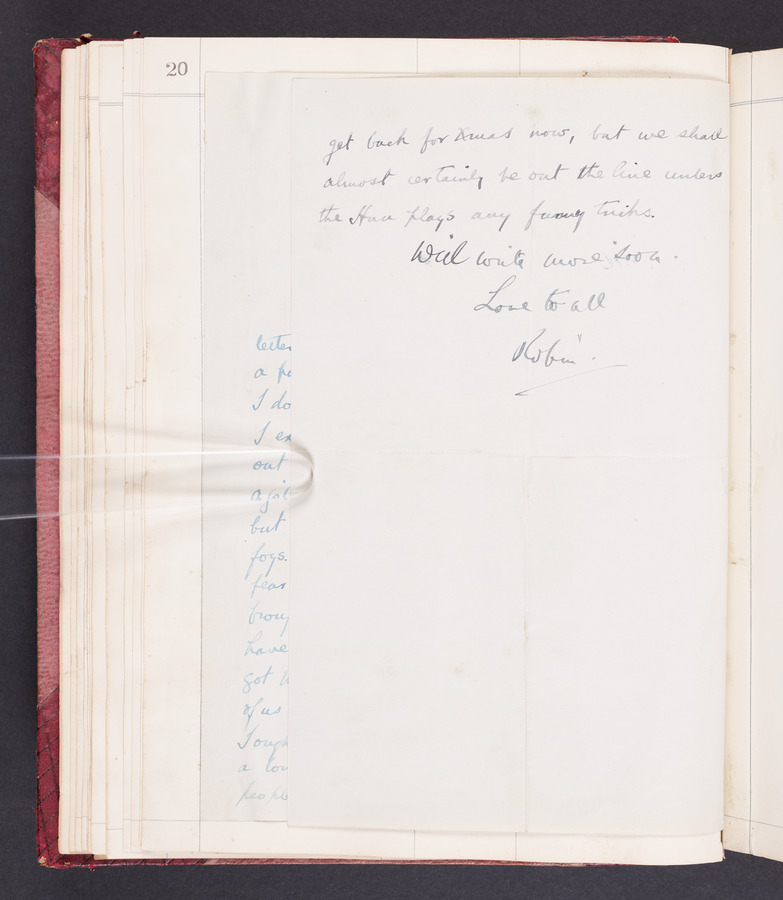 20
get back for Xmas now, but we shall
almost certainly be out the line unless
the Hun plays any funny tricks.
Will write more soon.
Love to all
Robin.
a
I do
I
out
but
fogs.
fear
have
got
of us
a